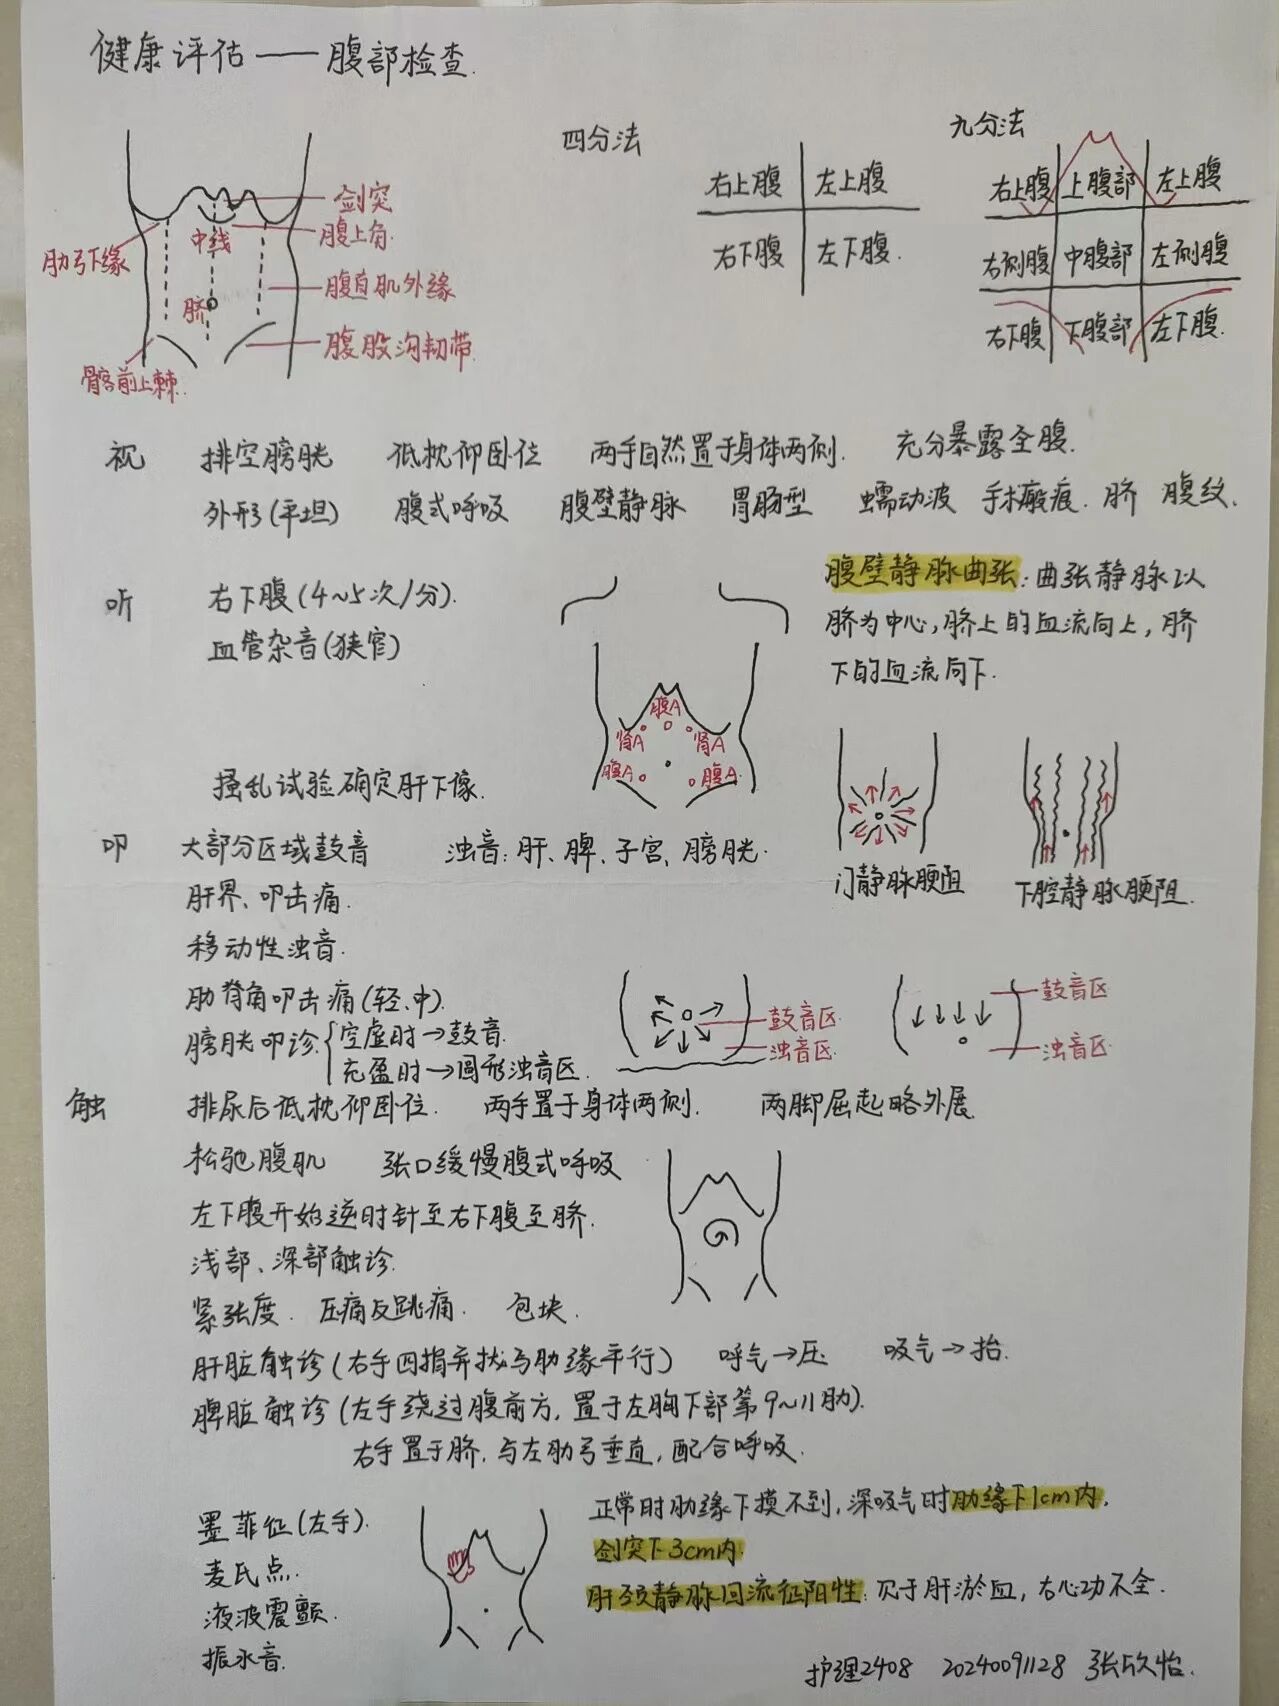 健康评估——腹部检查.
四分法
九分法
右上腹 左上腹
右下腹 左下腹.
右上腹 上腹部 左上腹
右侧腹 中腹部 左侧腹
右下腹 下腹部 左下腹.
剑突
腹上角.
中线
肋弓下缘
腹直肌外缘
脐
腹股沟韧带.
髂前上棘.
视 排空膀胱 低枕仰卧位 两手自然置于身体两侧. 充分暴露全腹.
外形(平坦) 腹式呼吸 腹壁静脉 胃肠型 蠕动波 手术瘢痕. 脐 腹纹.
听 右下腹(4~5次/分).
血管杂音(狭窄)
腹壁静脉曲张:曲张静脉以
脐为中心,脐上的血流向上,脐
下的血流向下.
腹A
肾A 肾A
腹A 腹A.
搔乱试验确定肝下缘.
叩 大部分区域鼓音 浊音:肝、脾、子宫、膀胱.
门静脉腰阻
下腔静脉腰阻.
肝界、叩击痛.
移动性浊音.
肋脊角叩击痛(轻、中).
膀胱叩诊. 空虚时→鼓音.
充盈时→圆形浊音区.
鼓音区.
浊音区.
鼓音区
浊音区.
触 排尿后低枕仰卧位. 两手置于身体两侧. 两脚屈起略外展.
松驰腹肌 张口缓慢腹式呼吸
左下腹开始逆时针至右下腹至脐.
浅部、深部触诊.
紧张度. 压痛反跳痛. 包块.
肝脏触诊(右手四指并拢与肋缘平行) 呼气→压 吸气→抬.
脾脏触诊(左手绕过腹前方,置于左胸下部第9~11肋).
右手置于脐.与左肋弓垂直,配合呼吸.
墨菲征(左手).
麦氏点.
液波震颤.
振水音.
正常时肋缘下摸不到,深吸气时肋缘下1cm内,
剑突下3cm内.
肝颈静脉回流征阳性:见于肝淤血,右心功不全.
护理2408 20240091128 张欣怡.